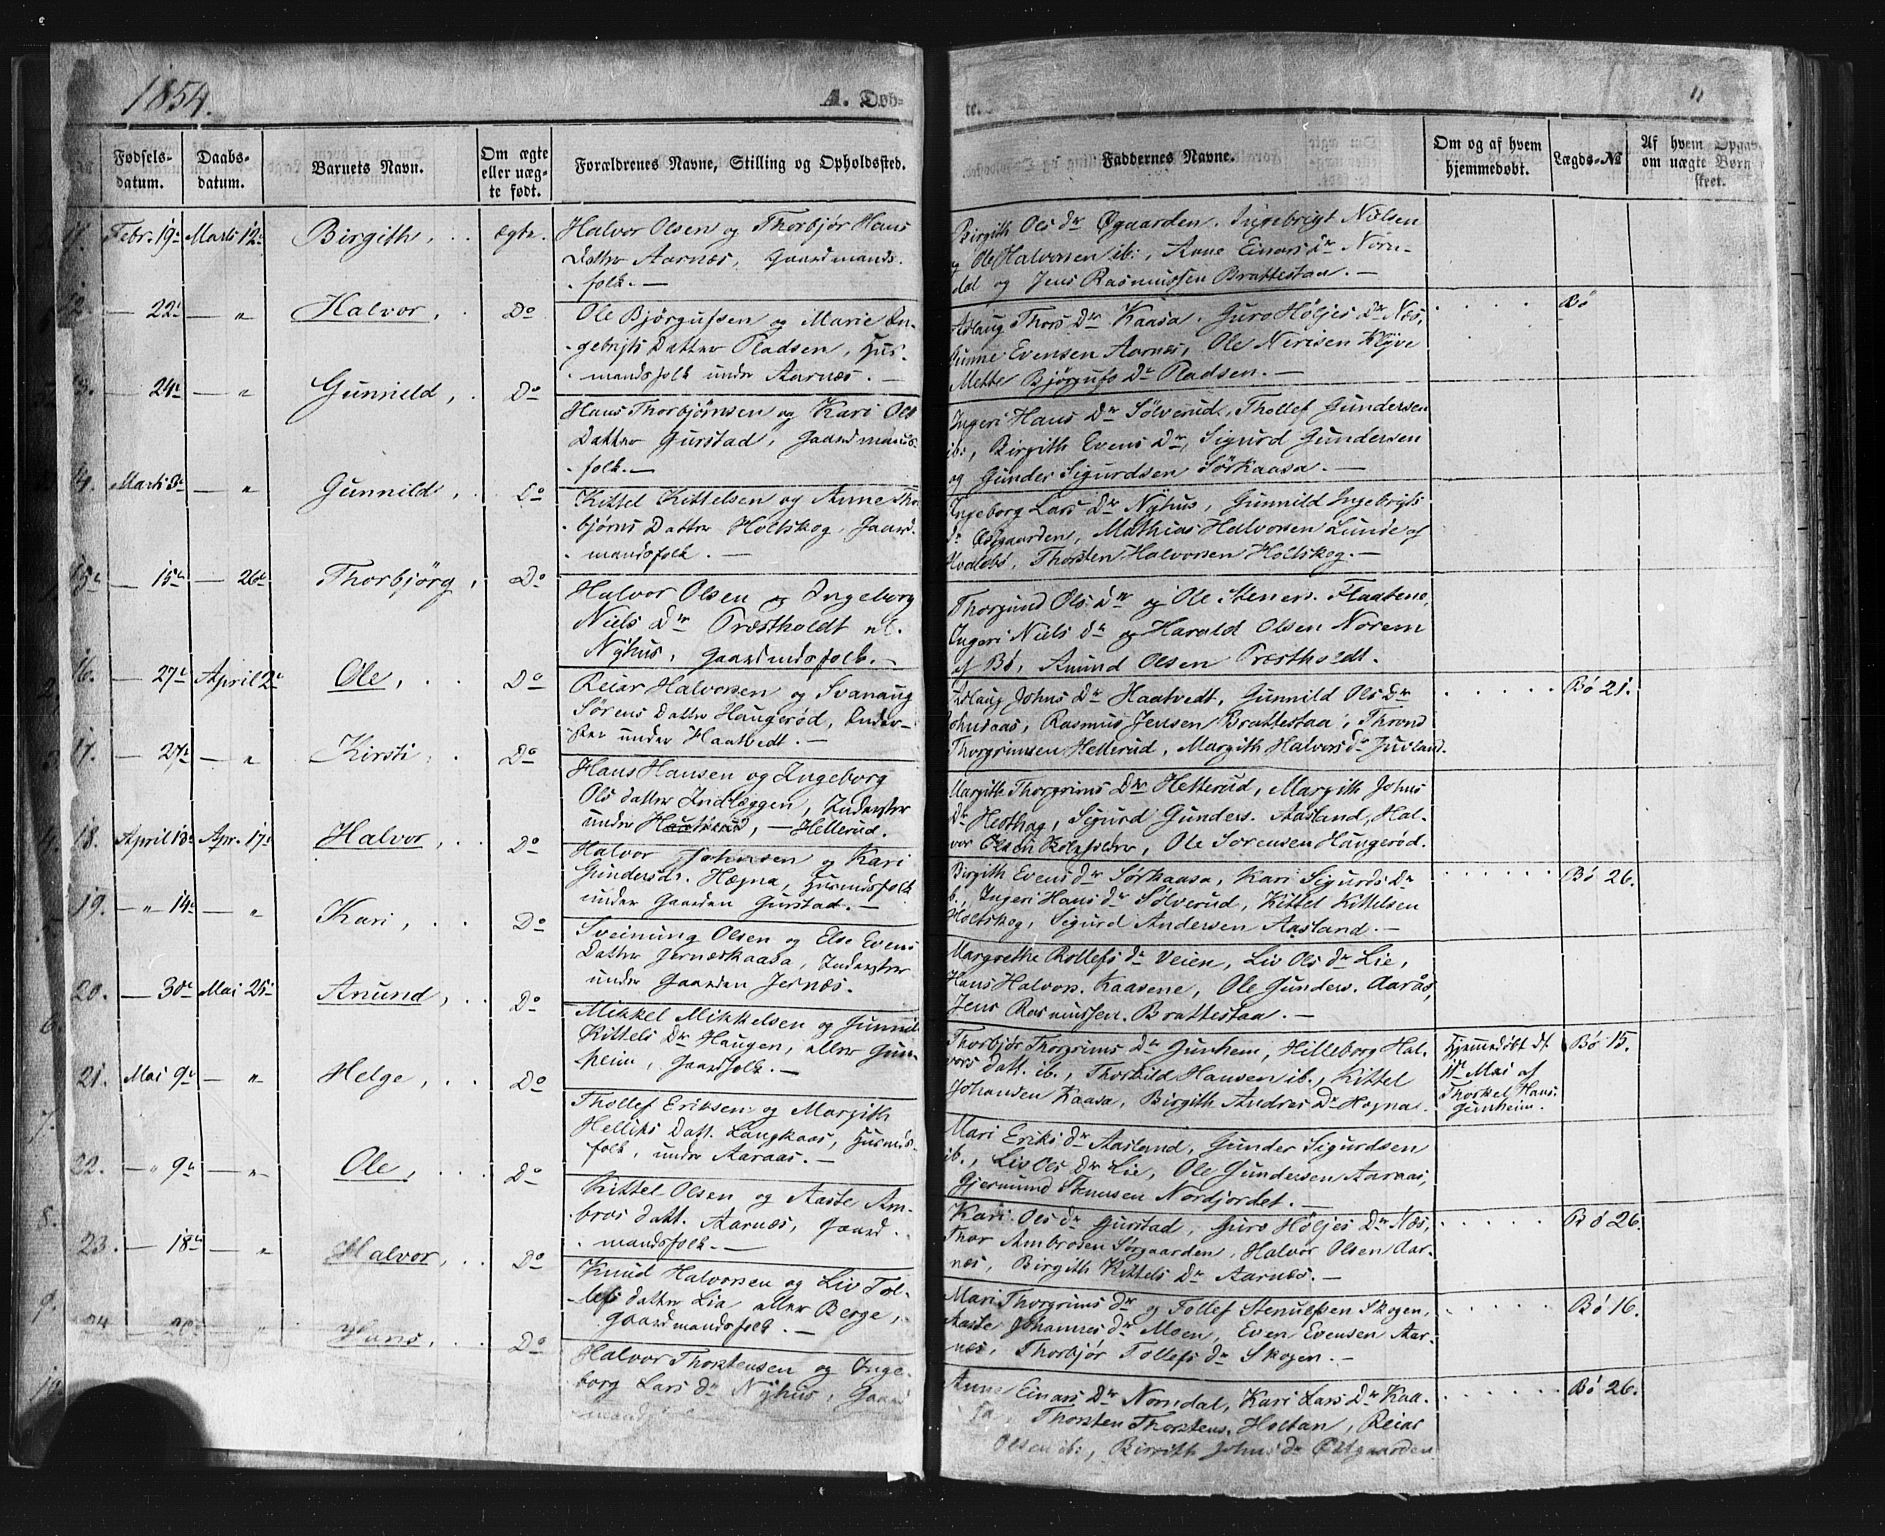 1854.
A. Døb-
te.
11
Fødsels-
datum.
Daabs-
datum.
Barnets Navn.
Om ægte
eller uæg-
te født.
Forældrenes Navne, Stilling og Opholdssted.
Faddernes Navne.
Om og af hvem
hjemmedøbt.
Lægds-No
Af hvem Opgave
om uægte Børn
skeet.
11. Febr. 19de Marts 12te Birgith, ægte. Halvor Olsen og Thorbjør Hans
Datter Aarnæs, Gaardmands-
folk. —
Birgith Ols dr Øgaarden. Ingebrigt Nielsen
og Ole Halvorsen ib:, Anne Einars dr Norn-
dal og Jens Rasmussen Brattestaa. —
12. — 22de — " Halvor, Do Ole Bjørgufsen og Marie In-
gebrigts Datter Pladsen, Hus-
mandsfolk under Aarnæs. —
Aslaug Thors Dr Kaasa. Guro Høljes Dr Næs,
Gunne Evensen Aarnæs, Ole Nirisen Klyve
Mette Bjørgufs Dr Pladsen. —
Bø
13. — 24de — " Gunnild, Do Hans Thorbjørnsen og Kari Ols
Datter Gurstad, Gaardmands-
folk. —
Ingeri Hans Dr Sølverud, Thollef Gundersen
ib:, Birgith Evens Dr, Sigurd Gundersen
og Gunder Sigurdsen Sørkaasa. —
14. Marts 3de — " Gunnild, Do Kittel Kittelsen og Anne Thor-
bjørns Datter Holtskog, Gaard-
mandsfolk. —
Ingeborg Lars Dr Nyhus, Gunnild Ingebrigts
dr Østgaarden, Mathias Halvorsen Lunde af
Hvideseid, Thorsten Halvorsen Holtskog. —
15. — 15de — 26de Thorbjörg, Do Halvor Olsen og Ingeborg
Niels Dr Præstholdt el.
Nyhus, Gaardmdsfolk. —
Thorgund Ols: dr og Ole Steners. Flaatene,
Ingeri Niels dr og Harald Olsen Norem
af Bø, Amund Olsen Præstholdt.
16. — 27de April 2de Ole, Do Reiar Halvorsen og Svanaug
Sørens Datter Haugerød, Inder-
ster under Haatvedt. —
Aslaug Johns Dr Haatvedt, Gunnild Ols Dr
Johnsaas, Rasmus Jensen Brattestaa, Thrond
Thorgrimsen Hellerud, Margith Halvors dr Juvland.
Bø 21.
17. — 27de — " Kirsti, Do Hans Hansen og Ingeborg
Ols datter Indlæggen, Inderster
under — Hellerud.
Margith Thorgrims Dr Hellerud, Margith Johns
Dr Hesthag, Sigurd Gunders. Aasland, Hal-
vor Olsen, Ole Sorensen Haugerød.
18. April 13de Apr. 17de Halvor, Do Halvor Johnsen og Kari
Gundersdr. Hægna, Husmdsfolk
under Gaarden Gurstad. —
Birgith Evens dr Sørkaasa, Kari Sigurds Dr
ib., Ingeri Hans dr Sølverud, Kittel Kittelsen
Holtskog, Sigurd Andersen Aasland. —
Bø 26.
19. — " 14de — " Kari, Do Sveinung Olsen og Else Evens
Datter Jernæskaasa, Inderster
under Gaarden Jernæs.
Margrethe Rollefs dr Veien, Liv Ols dr Lie,
Hans Halvors. Kaasene, Ole Gunders. Aarås,
Jens Rasmussen. Brattestaa. —
20. — 30de Mai 25de Anund, Do Mikkel Mikkelsen og Gunnild
Kittels Dr Haugen, eller Gun-
heim, Gaardfolk. —
Thorbjør Thorgrims dr Gunhem, Hilleborg Hal-
vors datt. ib., Thorkild Hansen ib., Kittel
Johansen Kaasa, Birgith Andres Dr Hogna.
Hjemmedøbt d.
11te Mai af
Thorkel Hans.
Gunheim.
Bø 15.
21. Mai 9de — " Helge, Do Thollef Eriksen og Margith
Helliks Datt. Langkaas, Husmds-
folk, under Aaraas. —
Mari Eriks dr Aasland, Gunder Sigurdsen
ib., Liv Ols Dr Lie, Ole Gundersen Aaraas,
Gjermund Nordjordet.
22. — " 9de — " Ole, Do Kittel Olsen og Aaste Am-
bros datt. Aarnæs, Gaard-
mandsfolk. —
Kari Ols dr Gurstad, Guro Høljes Dr Næs,
Thor Ambrosen Sørgaarden, Halvor Olsen Aar-
næs, Birgith Kittels Dr Aarnæs. —
Bø 26.
23. — 18de — " Halvor, Do Knud Halvorsen og Liv Tol-
lefs datter Lia eller Berge,
Gaardmandsfolk. —
Mari Thorgrims dr og Tollef Stenulfsen Skogen,
Aaste Johannes dr Moen, Even Evensen Aar-
næs, Thorbjør Tollefs dr Skogen. —
Bø 16.
24 — 20de " Hans, Do Halvor Thorstensen og Inge-
borg Lars dr Nyhus, Gaard
mands
Anne Einars Dr Norndal, Kari Lars Dr Kaa-
sa, Thorsten Thorstens. Holtan, Reiar
Olsen ib:, Birgith Johns dr Østgaarden
Bø 26.